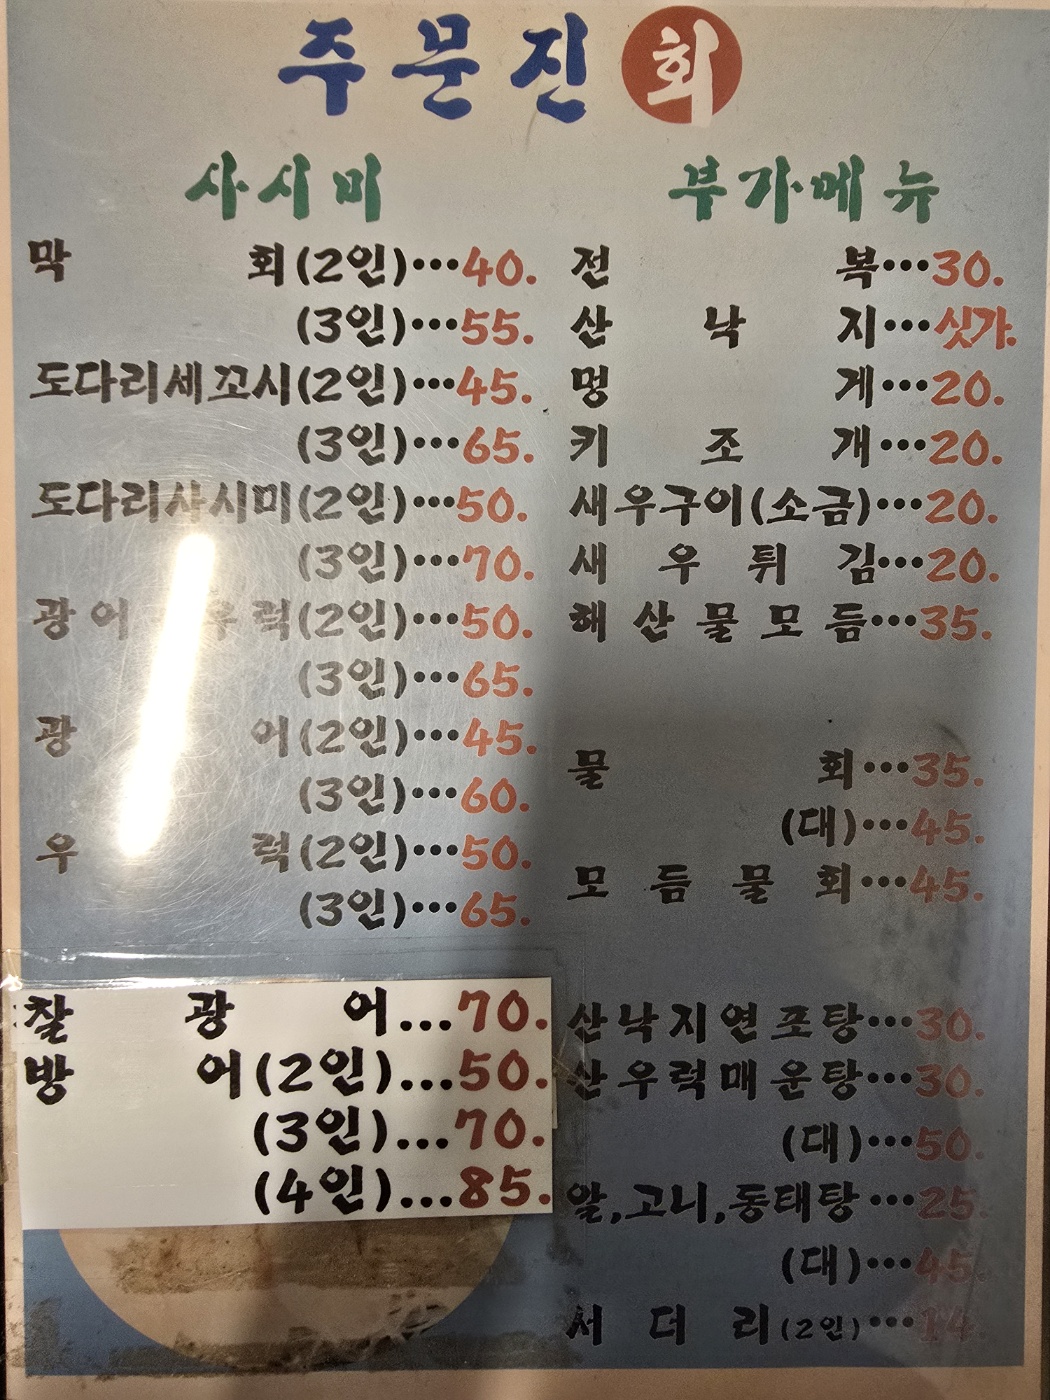 주문진 회
사시미
막 회(2인)...40.
(3인)...55.
도다리세꼬시(2인)...45.
(3인)...65.
도다리사시미(2인)...50.
(3인)...70.
광어 우럭(2인)...50.
(3인)...65.
광 어(2인)...45.
(3인)...60.
우 럭(2인)...50.
(3인)...65.
찰 광 어...70.
방 어(2인)...50.
(3인)...70.
(4인)...85.
부가메뉴
전 복...30.
산 낙 지...싯가.
멍 게...20.
키 조 개...20.
새우구이(소금)...20.
새 우 튀 김...20.
해 산 물 모 듬...35.
물 회...35.
(대)...45.
모 듬 물 회...45.
산낙지연포탕...30.
산우럭매운탕...30.
(대)...50.
알,고니,동태탕...25.
(대)...45.
서 더 리(2인)...14.